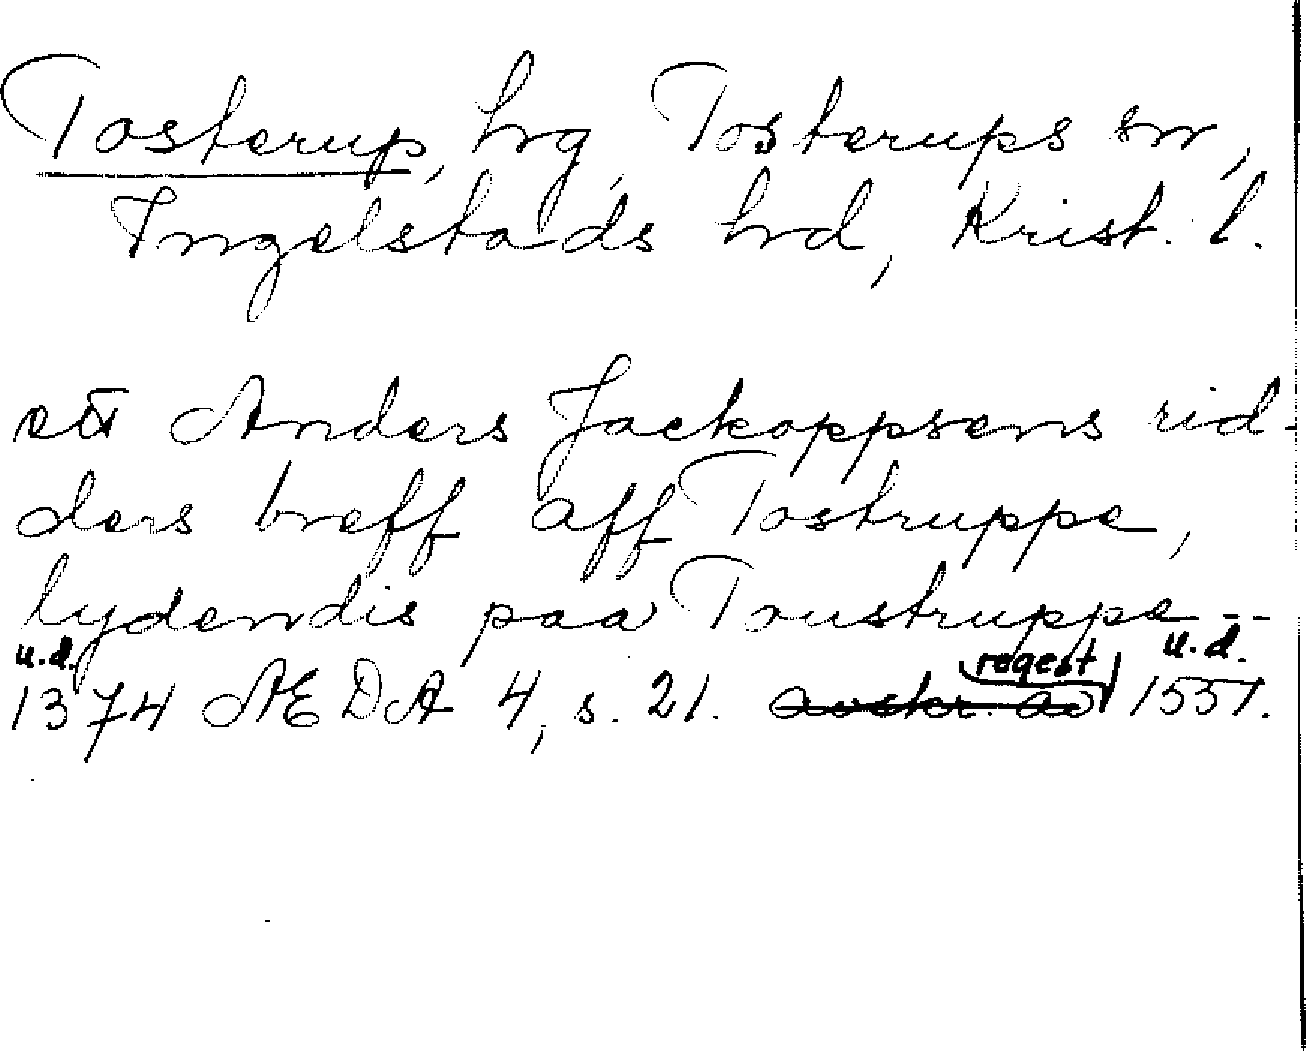 Tosterup, hrg, Tosterups sn,
Ingelstads hrd, Krist. l.
ett Anders Jackoppsens rid-
ders breff aff Tostruppe,
lydendis paa Toustruppe --
u.d. regest u.d.
1374 ÆDA 4, s. 21. avskr. av 1551.